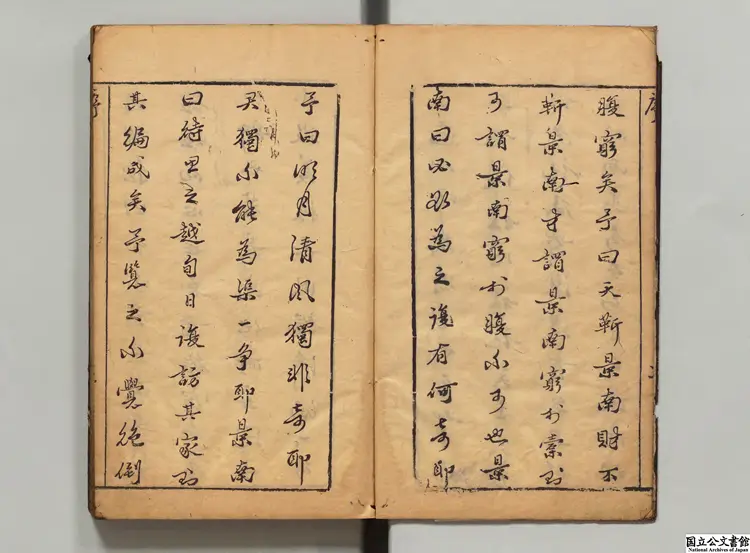 腹窮矣予曰天靳景南財不
靳景南才謂景南窮於則
可謂景南窮於腹不可也景
南曰必欲為之復有何奇耶
予曰明月清風獨非奇耶
君獨不能為渠一爭耶景南
曰待思之越旬日復訪其家則
其編成矣予覽之不覺絕倒
国立公文書館
National Archives of Japan